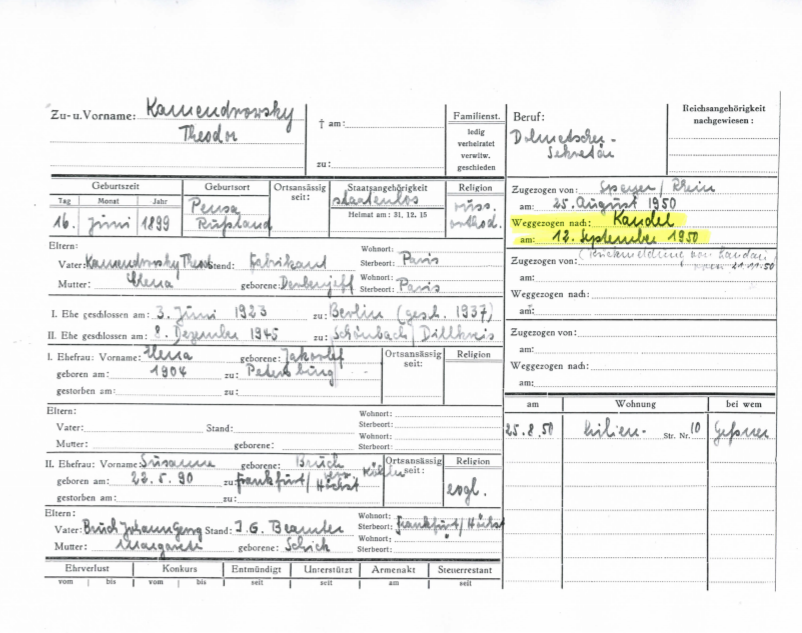 Zu- u. Vorname: Kamendrowsky
Theodor
† am:
zu:
Familienst.
ledig
verheiratet
verwitw.
geschieden
Geburtszeit
Tag Monat Jahr
16. Juni 1899
Geburtsort
Pensa
Rußland
Ortsansässig
seit:
Staatsangehörigkeit
staatenlos
Heimat am: 31. 12. 15
Religion
russ.
orthod.
Eltern:
Vater: Kamendrowsky Theod Stand: Fabrikant
Wohnort:
Sterbeort: Paris
Mutter: Elena geborene:
Wohnort:
Sterbeort: Paris
I. Ehe geschlossen am: 3. Juni 1923 zu: Berlin (gesch. 1937)
II. Ehe geschlossen am: 8. Dezember 1945 zu: Schönbach / Dillkreis
I. Ehefrau: Vorname: Elena geborene:
geboren am: 1904 zu: Petersburg
gestorben am: zu:
Ortsansässig
seit:
Religion
Eltern:
Vater: Stand:
Wohnort:
Sterbeort:
Mutter: geborene:
Wohnort:
Sterbeort:
II. Ehefrau: Vorname: Susanna geborene: Bruch
geboren am: 22. 5. 90 zu: Frankfurt / Höchst
gestorben am: zu:
Ortsansässig
seit:
Religion
evgl.
Eltern:
Vater: Bruch Johann Georg Stand: I.G. Beamter
Wohnort:
Sterbeort: Frankfurt / Höchst
Mutter: Margarete geborene: Schick
Wohnort:
Sterbeort: "
Ehrverlust Konkurs Entmündigt Unterstützt Armenakt Steuerrestant
vom bis vom bis seit seit am seit
Beruf:
Dolmetscher-
Sekretär
Reichsangehörigkeit
nachgewiesen:
Zugezogen von: Speyer / Rhein
am: 25. August 1950
Weggezogen nach: Kandel
am: 12. September 1950
Zugezogen von: (Rückmeldung von Landau
vom 21.11.50
am:
Weggezogen nach:
am:
Zugezogen von:
am:
Weggezogen nach:
am:
am Wohnung bei wem
25.8.50 Lilien- Str. Nr. 10